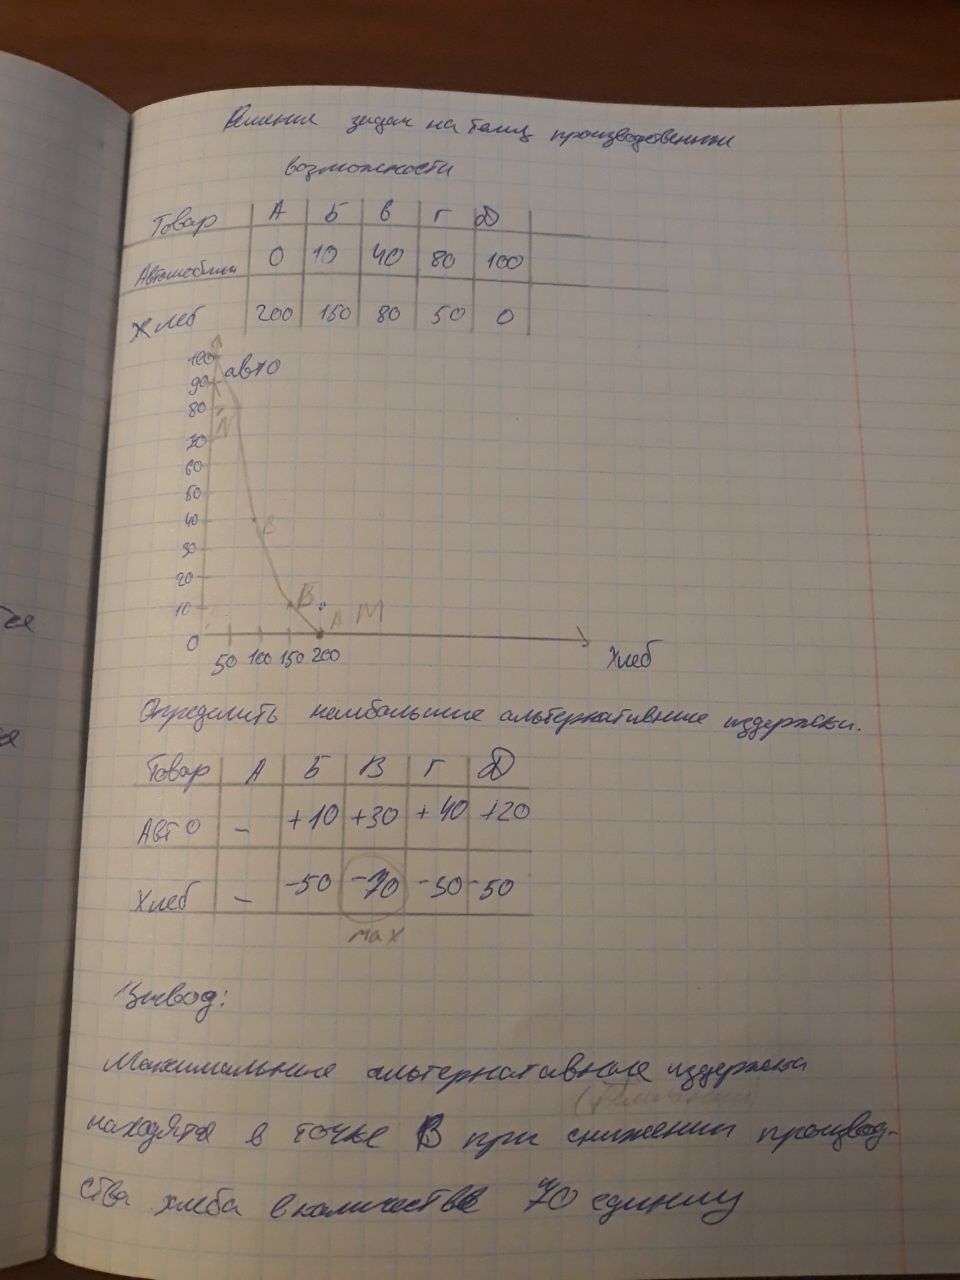 Решение задач на точку производственных
возможности
Товар А Б В Г Д
Автомобили 0 10 40 80 100
Хлеб 200 150 80 50 0
100 авто
90
80
N
70
60
50
40 В
30
20
10 Б А М
0 50 100 150 200 Хлеб
Определить наибольшие альтернативные издержки.
Товар А Б В Г Д
Авто – +10 +30 +40 +20
Хлеб – -50 -70 -30 -50
max
Вывод:
Максимальные альтернативные издержки
находятся в точке В при снижении производ-
ства хлеба в количестве 70 единиц